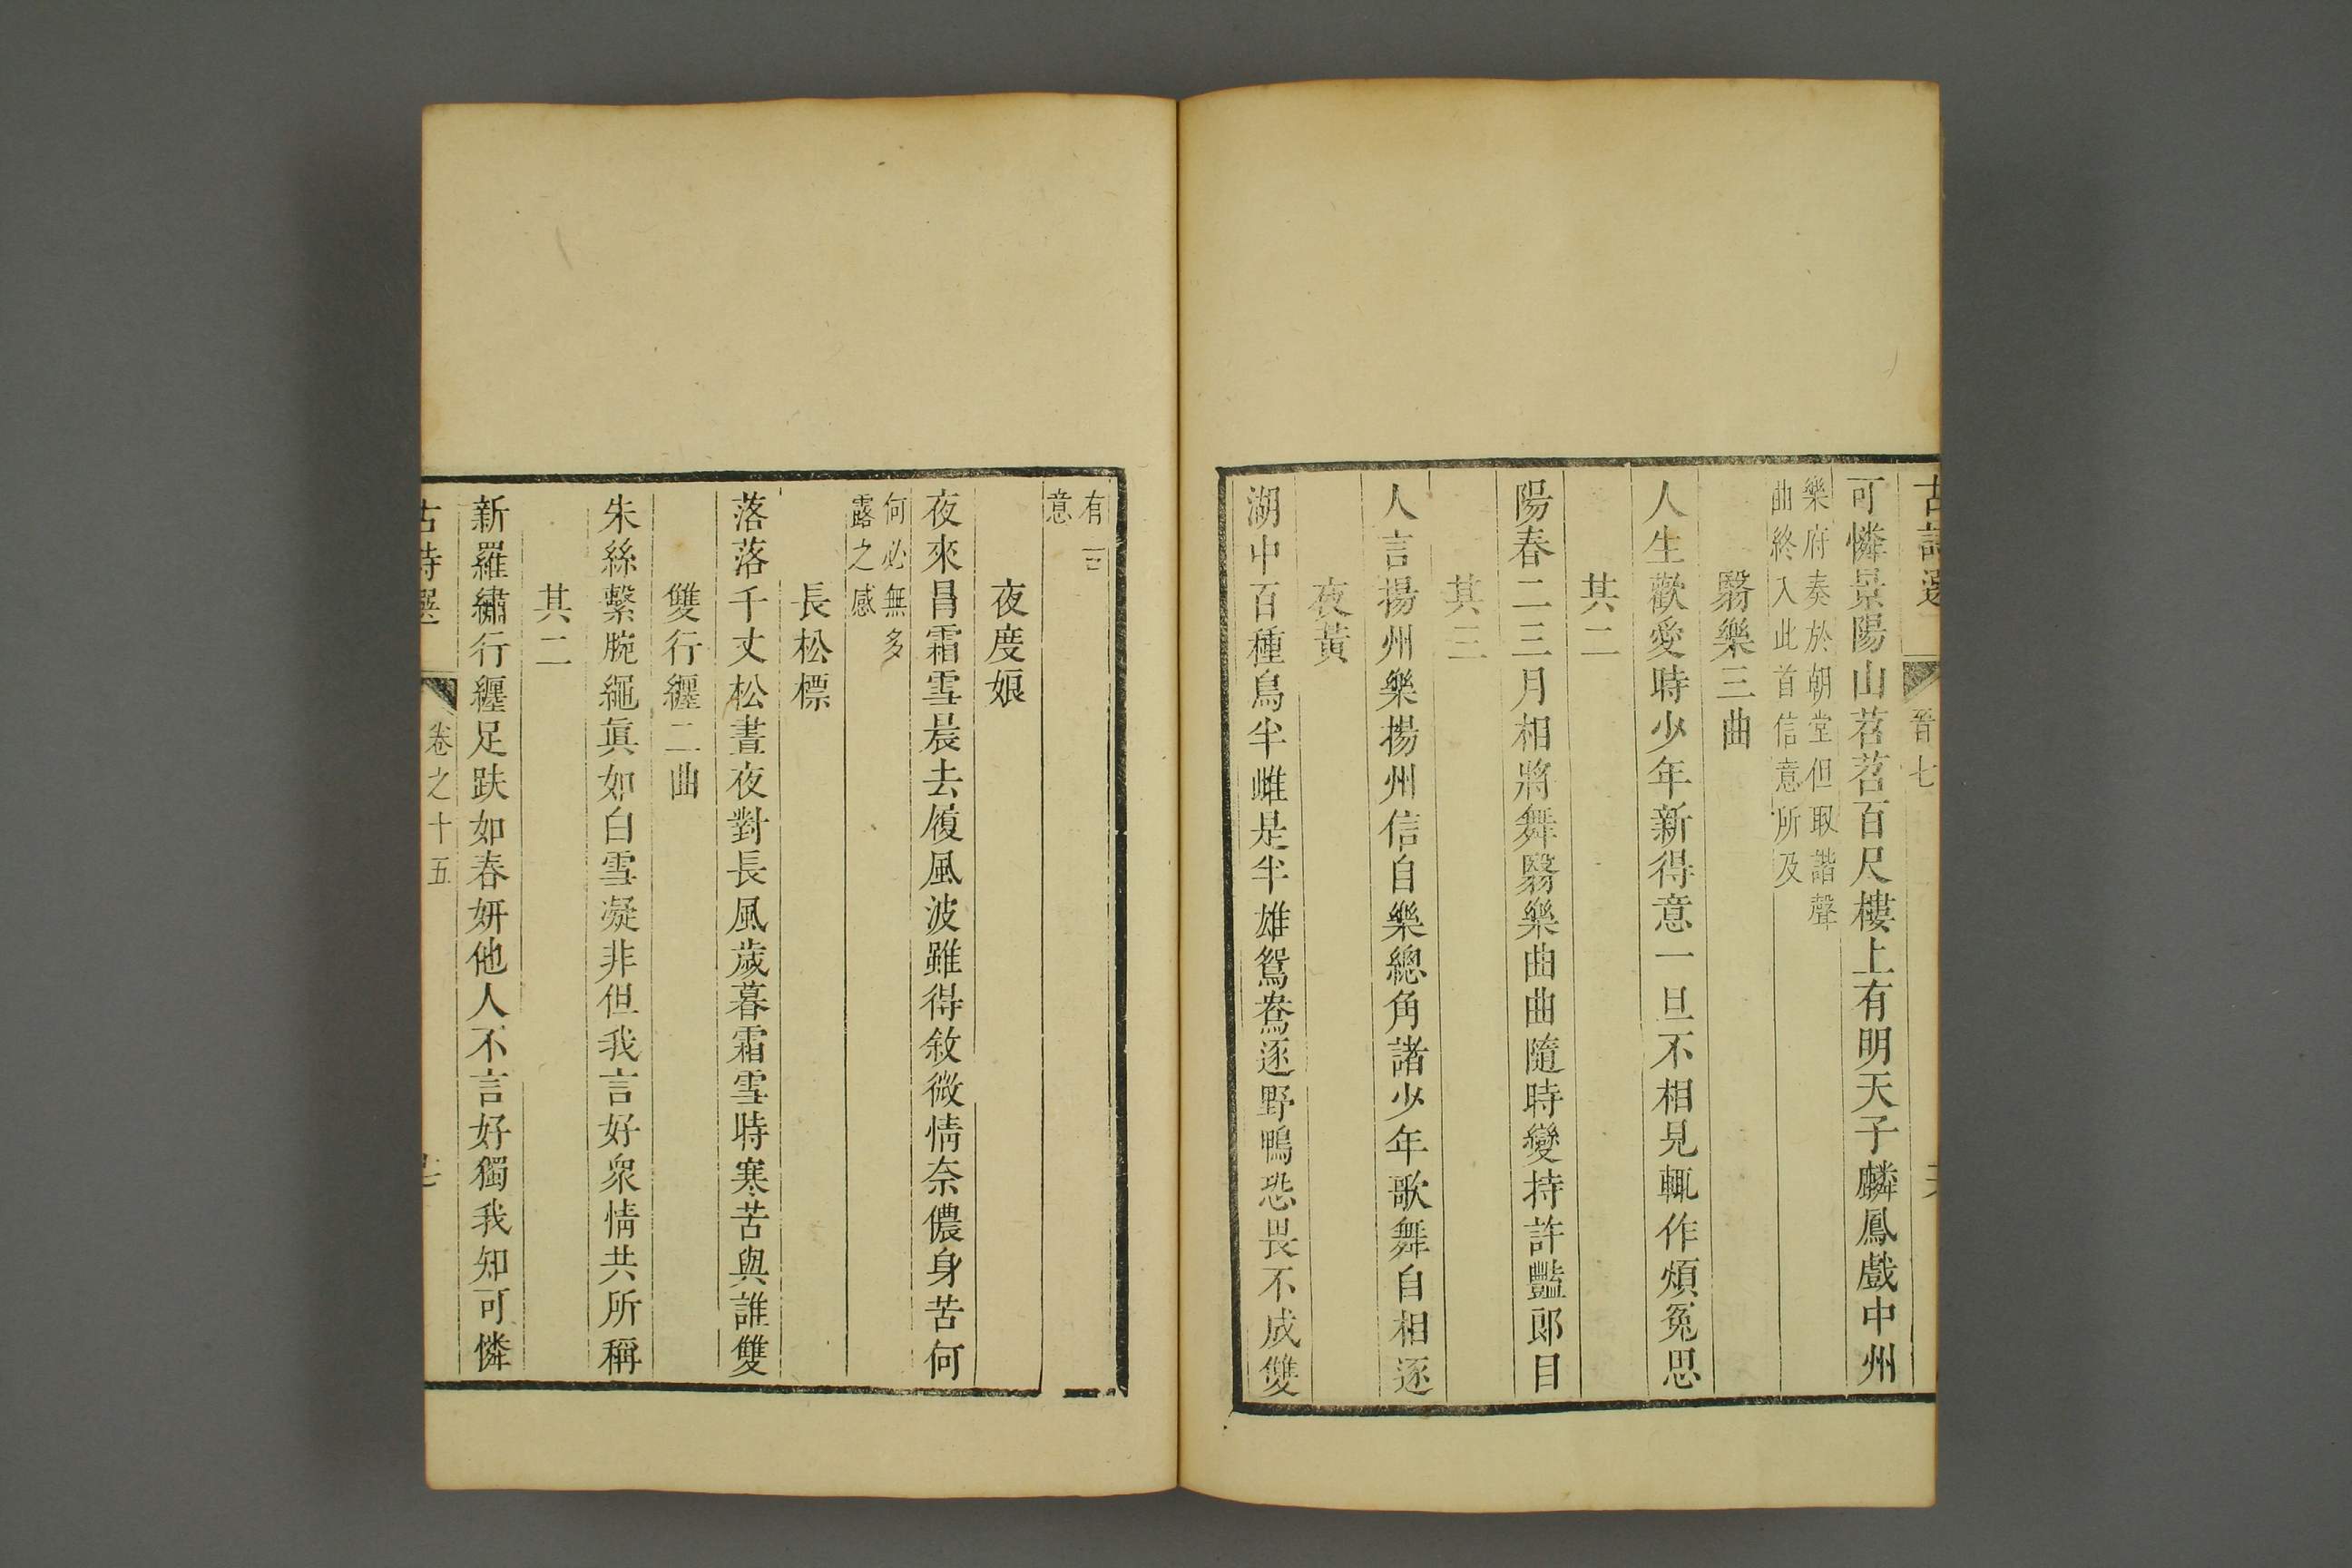 古詩選
晉七
可憐景陽山苕苕百尺樓上有明天子麟鳳戲中州
樂府奏於朝堂但取諧聲
曲終入此首信意所及
翳樂三曲
人生歡愛時少年新得意一旦不相見輒作煩冤思
其二
陽春二三月相將舞翳樂曲曲隨時變持許豔郎目
其三
人言揚州樂揚州信自樂總角諸少年歌舞自相逐
夜黃
湖中百種鳥半雌是半雄鴛鴦逐野鴨恐畏不成雙
有
意
夜度娘
夜來冒霜雪晨去履風波雖得敘微情奈儂身苦何
何必無多
露之感
長松標
落落千丈松晝夜對長風歲暮霜雪時寒苦與誰雙
雙行纏二曲
朱絲繫腕繩真如白雪凝非但我言好衆情共所稱
其二
新羅繡行纏足趺如春妍他人不言好獨我知可憐
古詩選
卷之十五